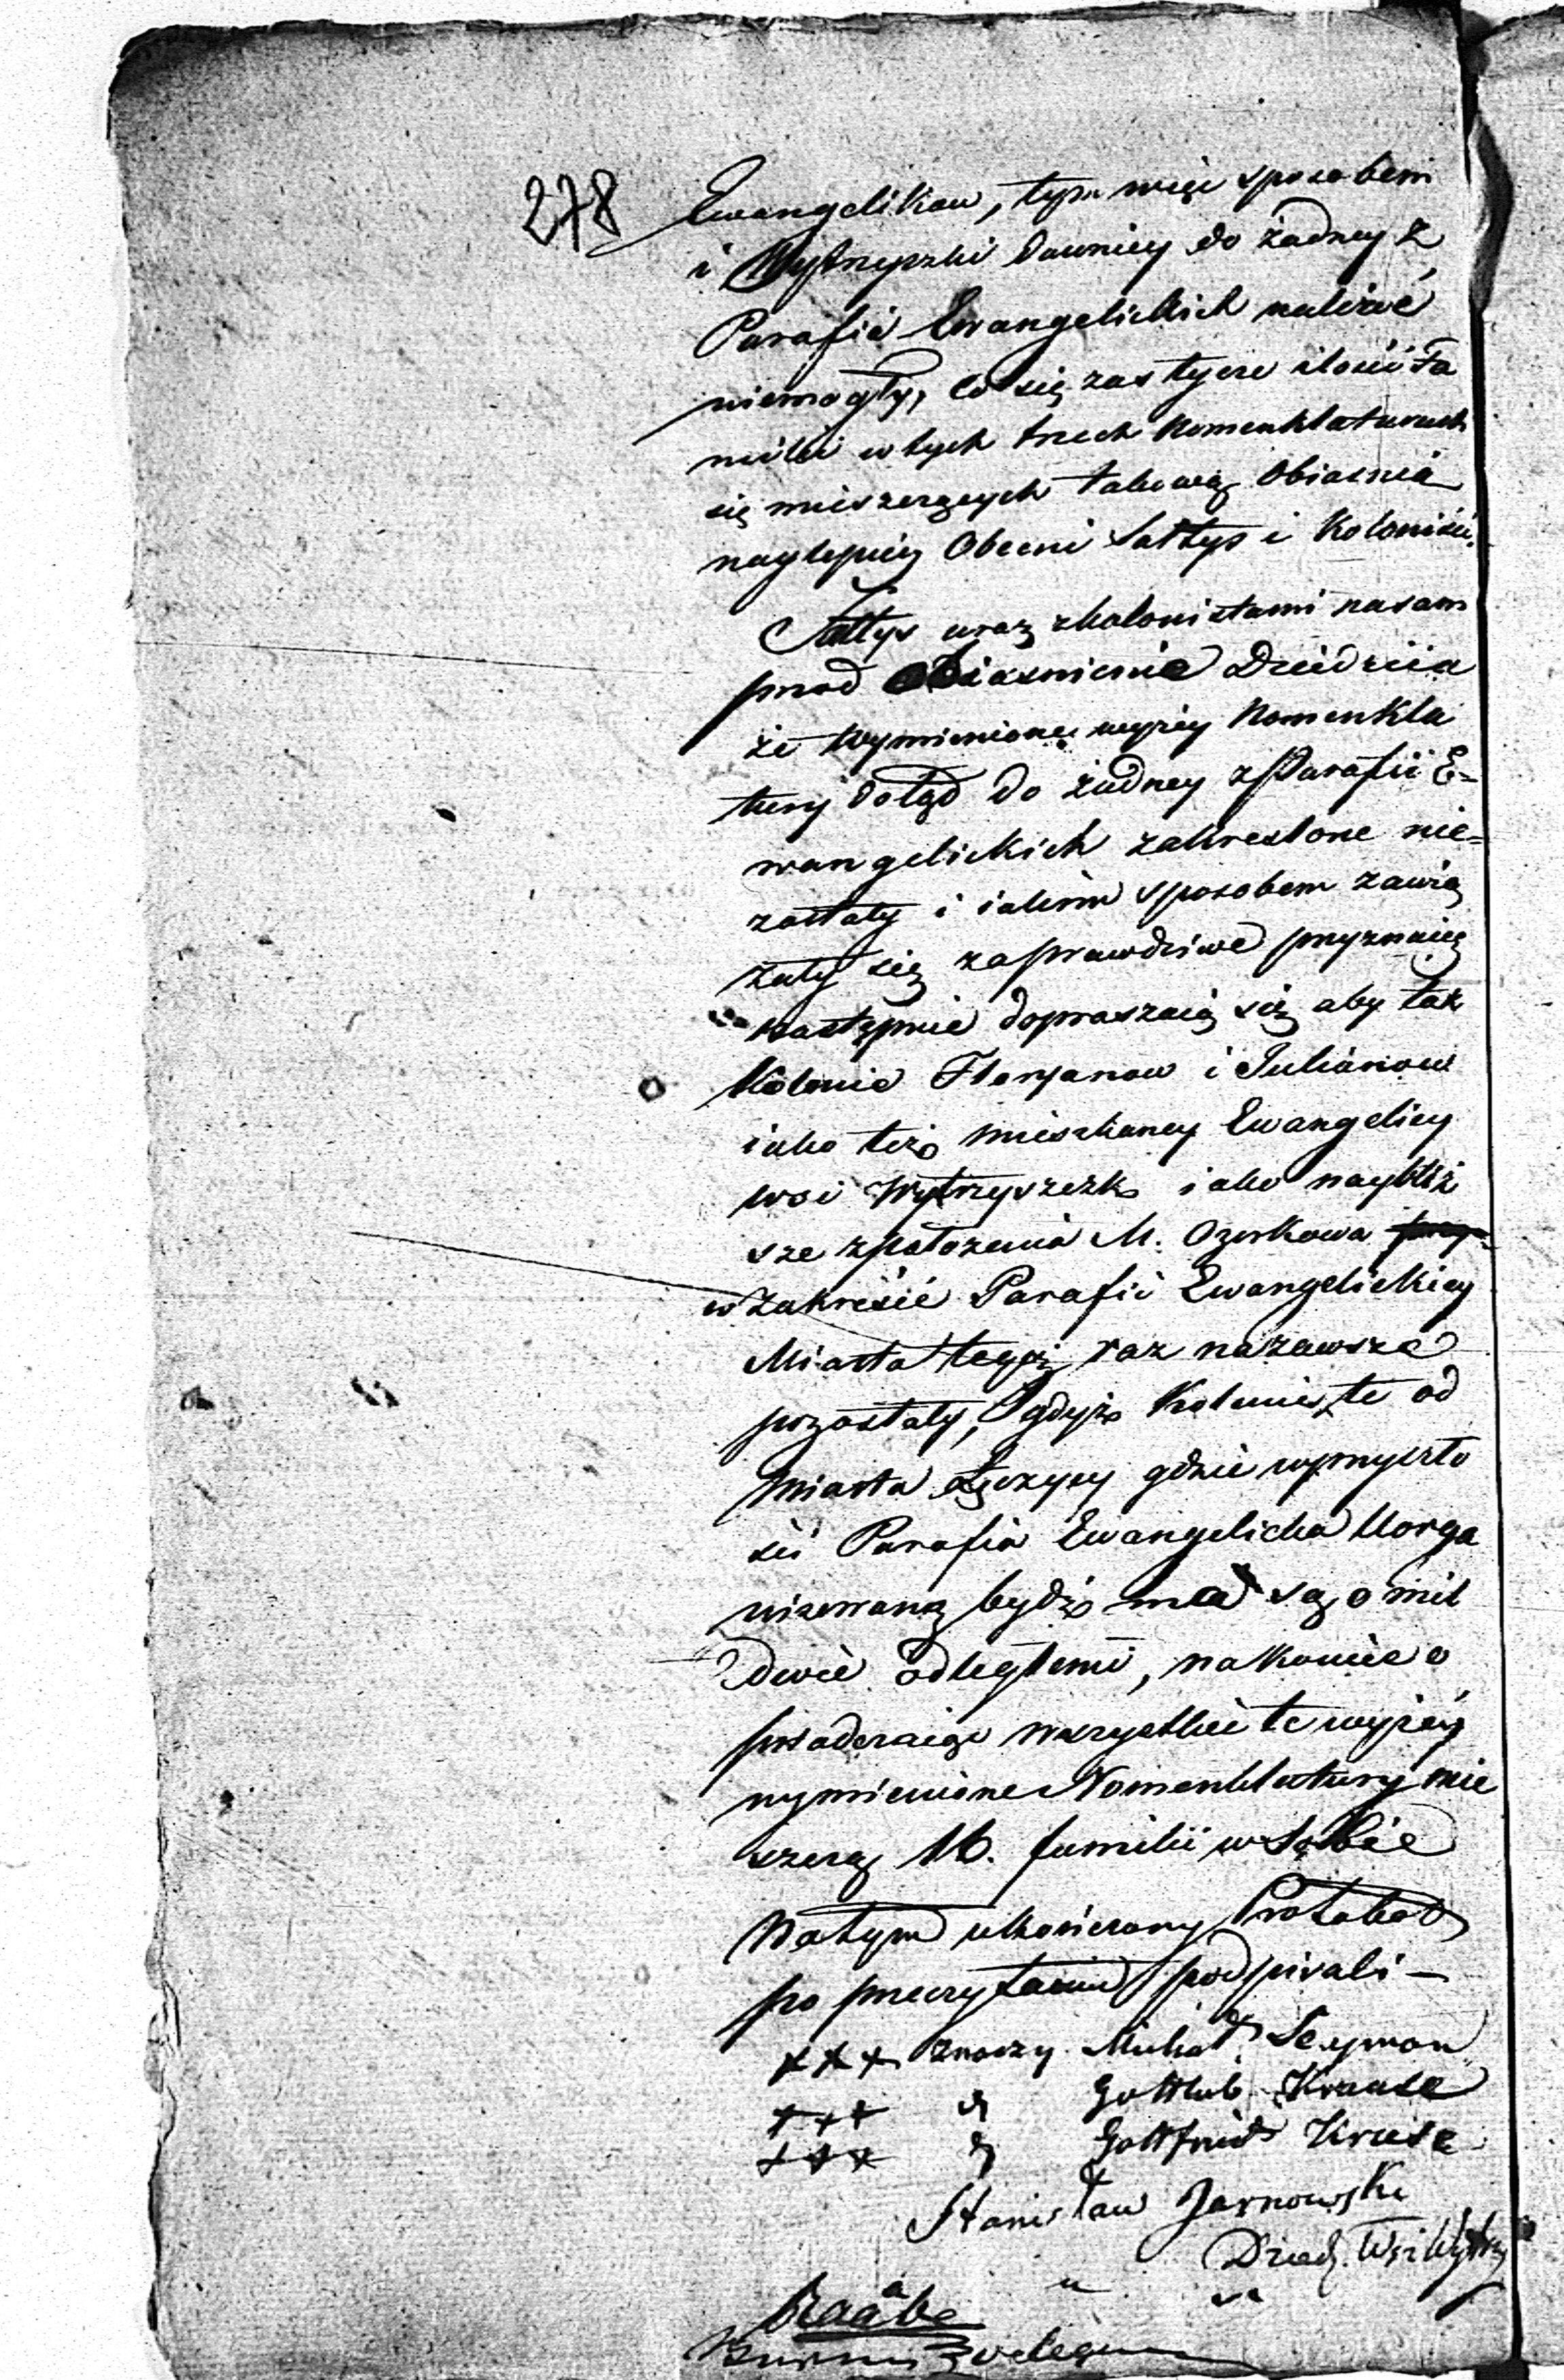 278
Ewangelikow, tym więc sposobem
i Wytrzyszki dawniey do żadney z
Parafii Ewangelickich należeć
niemogły, co się zas tycze ilości Fa
milii w tych trzech Nomenklaturach
się mieszczących takową Obiasnią
naylepiey Obecni Sołtys i Koloniści.
Sołtys wraz zkolonistami na sam
przod obiasnienie Dziedzica
że wymienione wyżey Nomenkla
tury dotąd do żadney z Parafii E=
wangelickich zakreslone nie=
zostały i iakim sposobem zawią
zały się za prawdziwe przyznaią
następnie dopraszaią się aby tak
Kolonie Floryanow i Julianow
iako też mieszkancy Ewangelicy
wsi Wytrzyszczk iako naybliż
sze z położenia M. Ozorkowa
w zakresie Parafii Ewangelickiey
Miasta tegoż raz nazawsze
pozostały, gdyż Kolonie te od
Miasta Łęczycy gdzie wprzyszło
ści Parafia Ewangelicka Uorga
nizowaną bydź ma są o mil
dwie odległemi, nakoniec o
swiadczaią wszystkie te wyżey
wymienione Nomenklatury mie
szczą 16. familii w sobie
Natym ukończony Protokoł
po przeczytaniu podpisali —
+++ znaczy Michał Seyman
+++ " Gottlieb Krause
+++ " Gottfried Krause
Stanisław Jarnowski
Dzied. Wsi Wytrzy
Raabe